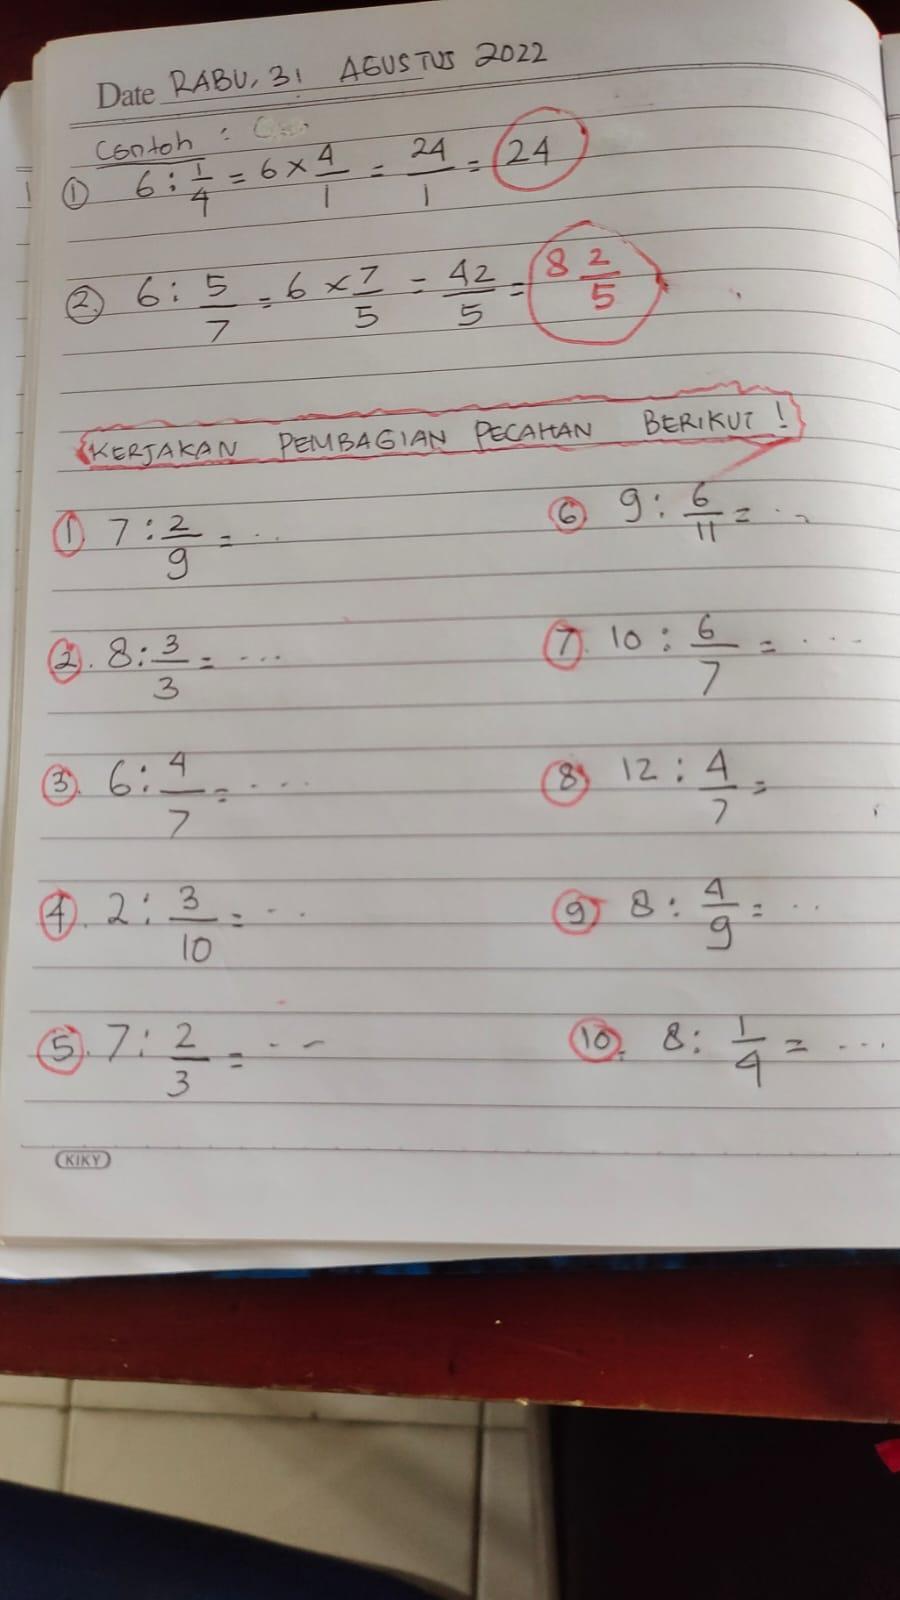 Date RABU, 31 AGUSTUS 2022
Contoh :
① 6 : 1/4 = 6 × 4/1 = 24/1 = 24
②. 6 : 5/7 = 6 × 7/5 = 42/5 = 8 2/5
KERJAKAN PEMBAGIAN PECAHAN BERIKUT !
① 7 : 2/9 = ...
②. 8 : 3/3 = ...
③. 6 : 4/7 = ...
④. 2 : 3/10 = ...
⑤. 7 : 2/3 = ...
⑥ 9 : 6/11 = ...
⑦. 10 : 6/7 = ...
⑧ 12 : 4/7 =
⑨ 8 : 4/9 = ...
⑩. 8 : 1/4 = ...
KIKY